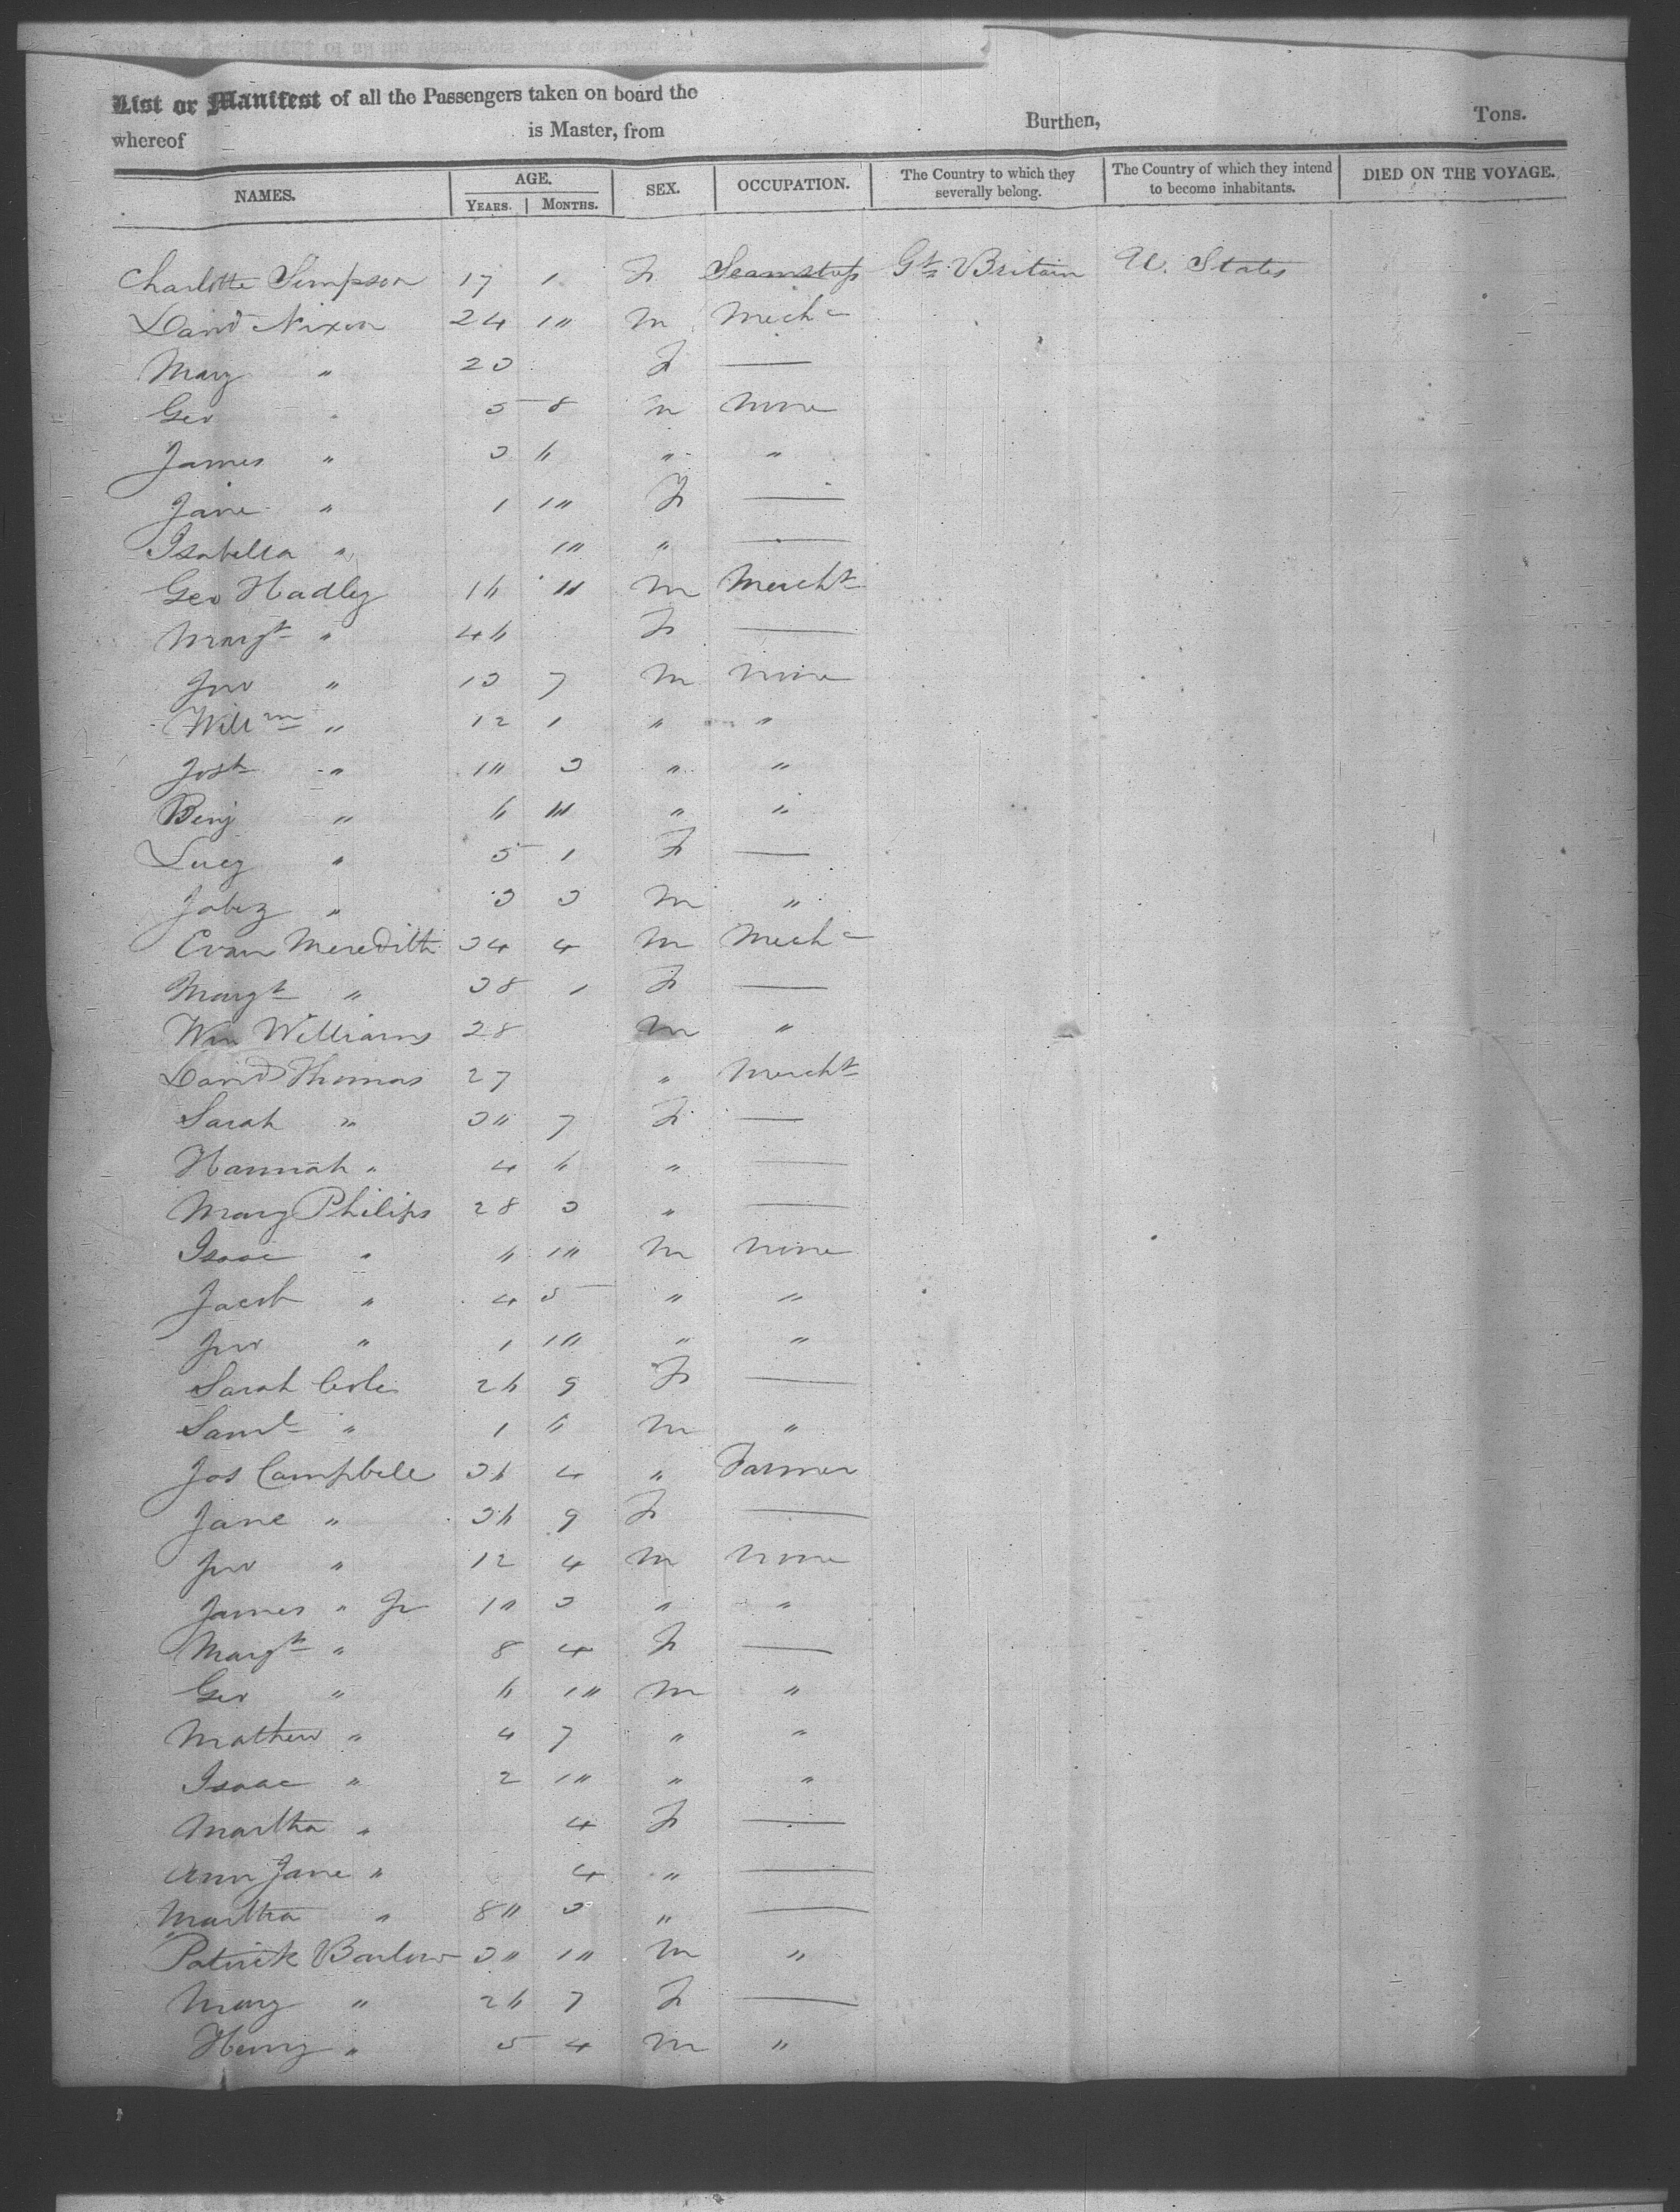 List or Manifest of all the Passengers taken on board the
whereof is Master, from Burthen, Tons.
NAMES. AGE. YEARS. MONTHS. SEX. OCCUPATION. The Country to which they severally belong. The Country of which they intend to become inhabitants. DIED ON THE VOYAGE.
Charlotte Simpson 17 1 F Seamstress Gt. Britain U. States
David Nixon 24 10 M Mechc
Mary " 23 F —
Geo " 5 8 M None
James " 3 6 " "
Jane " 1 10 F —
Isabella " 10 " —
Geo Hadley 16 11 M Mercht
Margt " 46 F —
Jno " 13 7 M None
Willm " 12 1 " "
Josh " 10 3 " "
Benj " 6 11 " "
Lucy " 5 1 F —
Jabez " 3 3 M "
Evan Meredith 34 4 M Mechc
Margt " 38 1 F —
Wm Williams 28 M "
David Thomas 27 " Mercht
Sarah " 30 7 F —
Hannah " 4 6 " —
Mary Philips 28 3 " —
Isaac " 6 10 M None
Jacob " 4 5 " "
Jno " 1 10 " "
Sarah Cole 26 9 F —
Saml " 1 6 M "
Jos Campbell 36 4 " Farmer
Jane " 36 9 F —
Jno " 12 4 M None
James " Jr 10 3 " "
Margt " 8 4 F —
Geo " 6 10 M "
Mathew " 4 7 " "
Isaac " 2 10 " "
Martha " 4 F —
Ann Jane " 4 " —
Martha " 80 3 " —
Patrick Barlow 30 10 M "
Mary " 26 7 F —
Henry " 5 4 M "